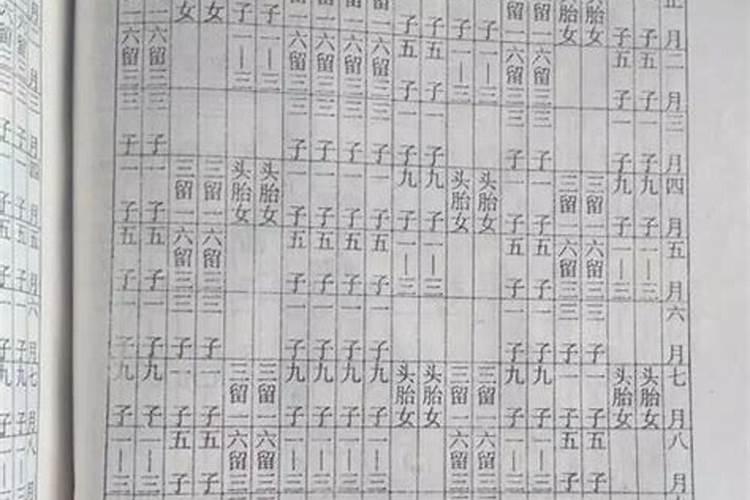 月二月三月四月五月六月七月八月
子五子一子九子一—三头胎女
子五子一子九子一—三头胎女
胎女三留一六留三三子一子五子
胎女三留一六留三三子一子五子
留一六留三三子一子五子一子九子一—三
留一六留三三子一子五子一子九子一—三
子一—三头胎女三留一六留三
子一—三头胎女三留一六留三
子五子一子九子一—三头胎女
子五子一子九子一—三头胎女
留一六留三三子一子五子一子九子一—三
留一六留三三子一子五子一子九子一—三
留一六留三三子一子五子一子九子一—三
留一六留三三子一子五子一子九子一—三
子一—三头胎女三留一六留三
子一—三头胎女三留一六留三
女三留一六留三三子一子五子
女三留一六留三三子一子五子
一六留三三子一子五子一子九子一—三
一六留三三子一子五子一子九子一—三